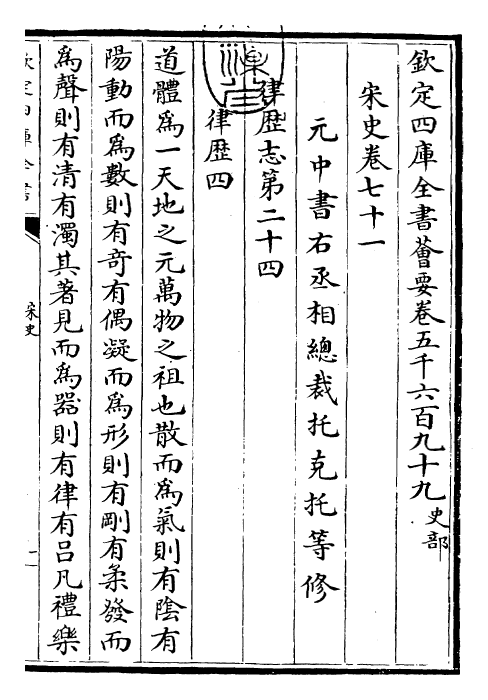 欽定四庫全書薈要卷五千六百九十九 史部
宋史卷七十一
元中書右丞相總裁托克托等修
律歷志第二十四
律歷四
道體為一天地之元萬物之祖也散而為氣則有陰有
陽動而為數則有奇有偶凝而為形則有剛有柔發而
為聲則有清有濁其著見而為器則有律有呂凡禮樂
欽定四庫全書
宋史
一